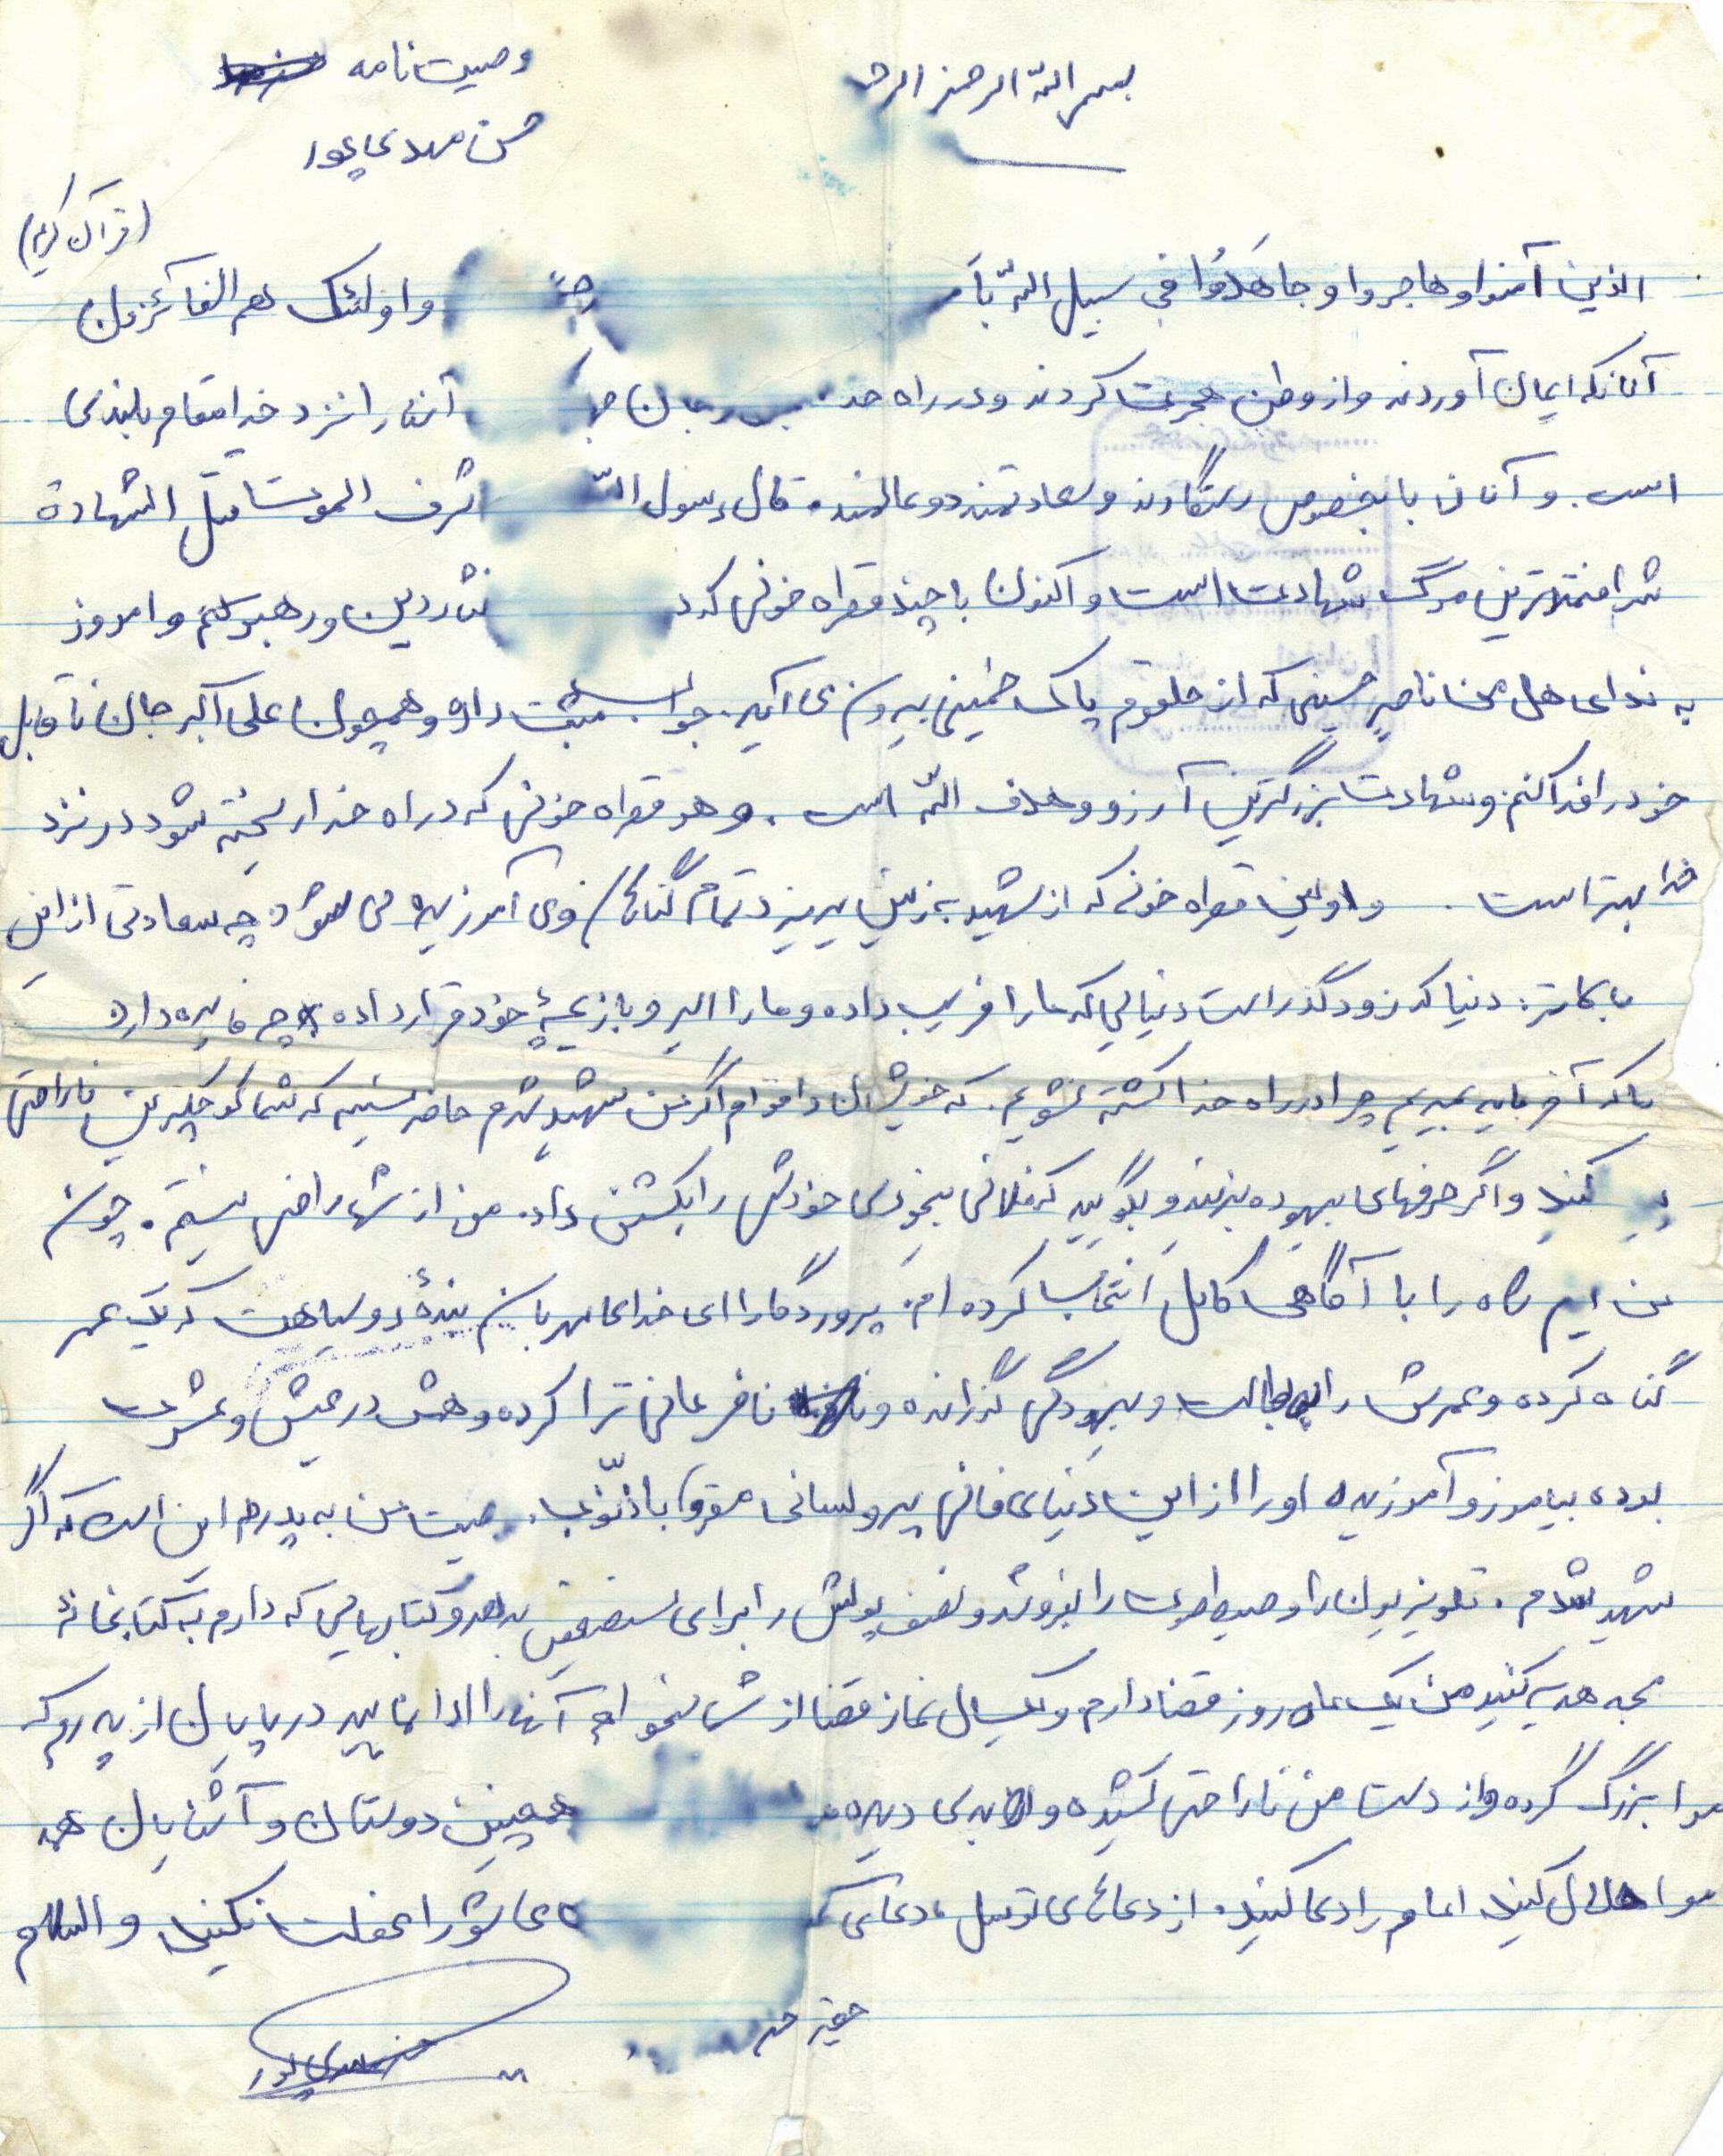 بسم الله الرحمن الرحیم
وصیت نامه
حسن مهدی پور
(قرآن کریم)
الذین آمنوا و هاجروا و جاهَدُوا فی سبیل اللّه واولئک هم الفائزون
آنانکه ایمان آوردند و از وطن هجرت کردند و در راه خدا آنان را نزد خدا مقام بلندی
است. و آنان بالخصوص رستگارند و سعادتمند دو عالمند. قال رسول اللّه اشرف الموت قتل الشهادة
شرافتمندترین مرگ شهادت است و اکنون با چند قطره خونی که در نثار دین و رهبر کنم و امروز
به ندای هل من ناصر حسینی که از حلقوم پاک خمینی بیرون می آید. جواب مثبت داده و همچون علی اکبر جان ناقابل
خود را فدا کنم و شهادت بزرگترین آرزو و هدف اللّه است. و هر قطره خونی که در راه خدا ریخته شود در نزد
خدا بهتر است. و اولین قطره خونی که از شهید به زمین بریزد تمام گناهان وی آمرزیده می شود چه سعادتی از این
بالاتر: دنیا که زودگذر است دنیایی که ما را فریب داده و ما را اسیر و بازیچهٔ خود قرار داده چه فایده دارد
ما که آخر باید بمیریم چرا در راه خدا کشته نشویم. که خویشان و اقوام اگر من شهید شدم حاضر نیستم که شما کوچکترین ناراحتی
کنید و اگر حرفهای بیهوده بزنید و بگویید که فلانی بیخودی خودش را بکشتن داد. من از شما راضی نیستم. چون
من این راه را با آگاهی کامل انتخاب کرده ام. پروردگارا ای خدای مهربان بندهٔ روسیاهت که یک عمر
گناه کرده و عمرش را به بطالت و بیهودگی گذرانده و نافرمانی ترا کرده و همش در عیش و عشرت
بوده بیامرز و آمرزیده او را از این دنیای فانی ببر ولسانی مقرّاً بالذنوب. وصیت من به پدرم این است که اگر
شهید شدم. تلویزیون را و ضبط صوت را بفروشد و نصف پولش را برای مستضعفین بدهد و کتابهایی که دارم به کتابخانهٔ
هدیه کنید من یک ماه روزه قضا دارم و یکسال نماز قضا از شما میخواهم آنها را ادا نمایید در پایان از پدرم که
مرا بزرگ کرده و از دست من ناراحتی کشیده و بدی دیده همچنین دوستان و آشنایان همه
مرا حلال کنید امام را دعا کنید. از دعاهای توسل، دعای عاشورا غفلت نکنید والسلام
حقیر حسن
حسن مهدی پور